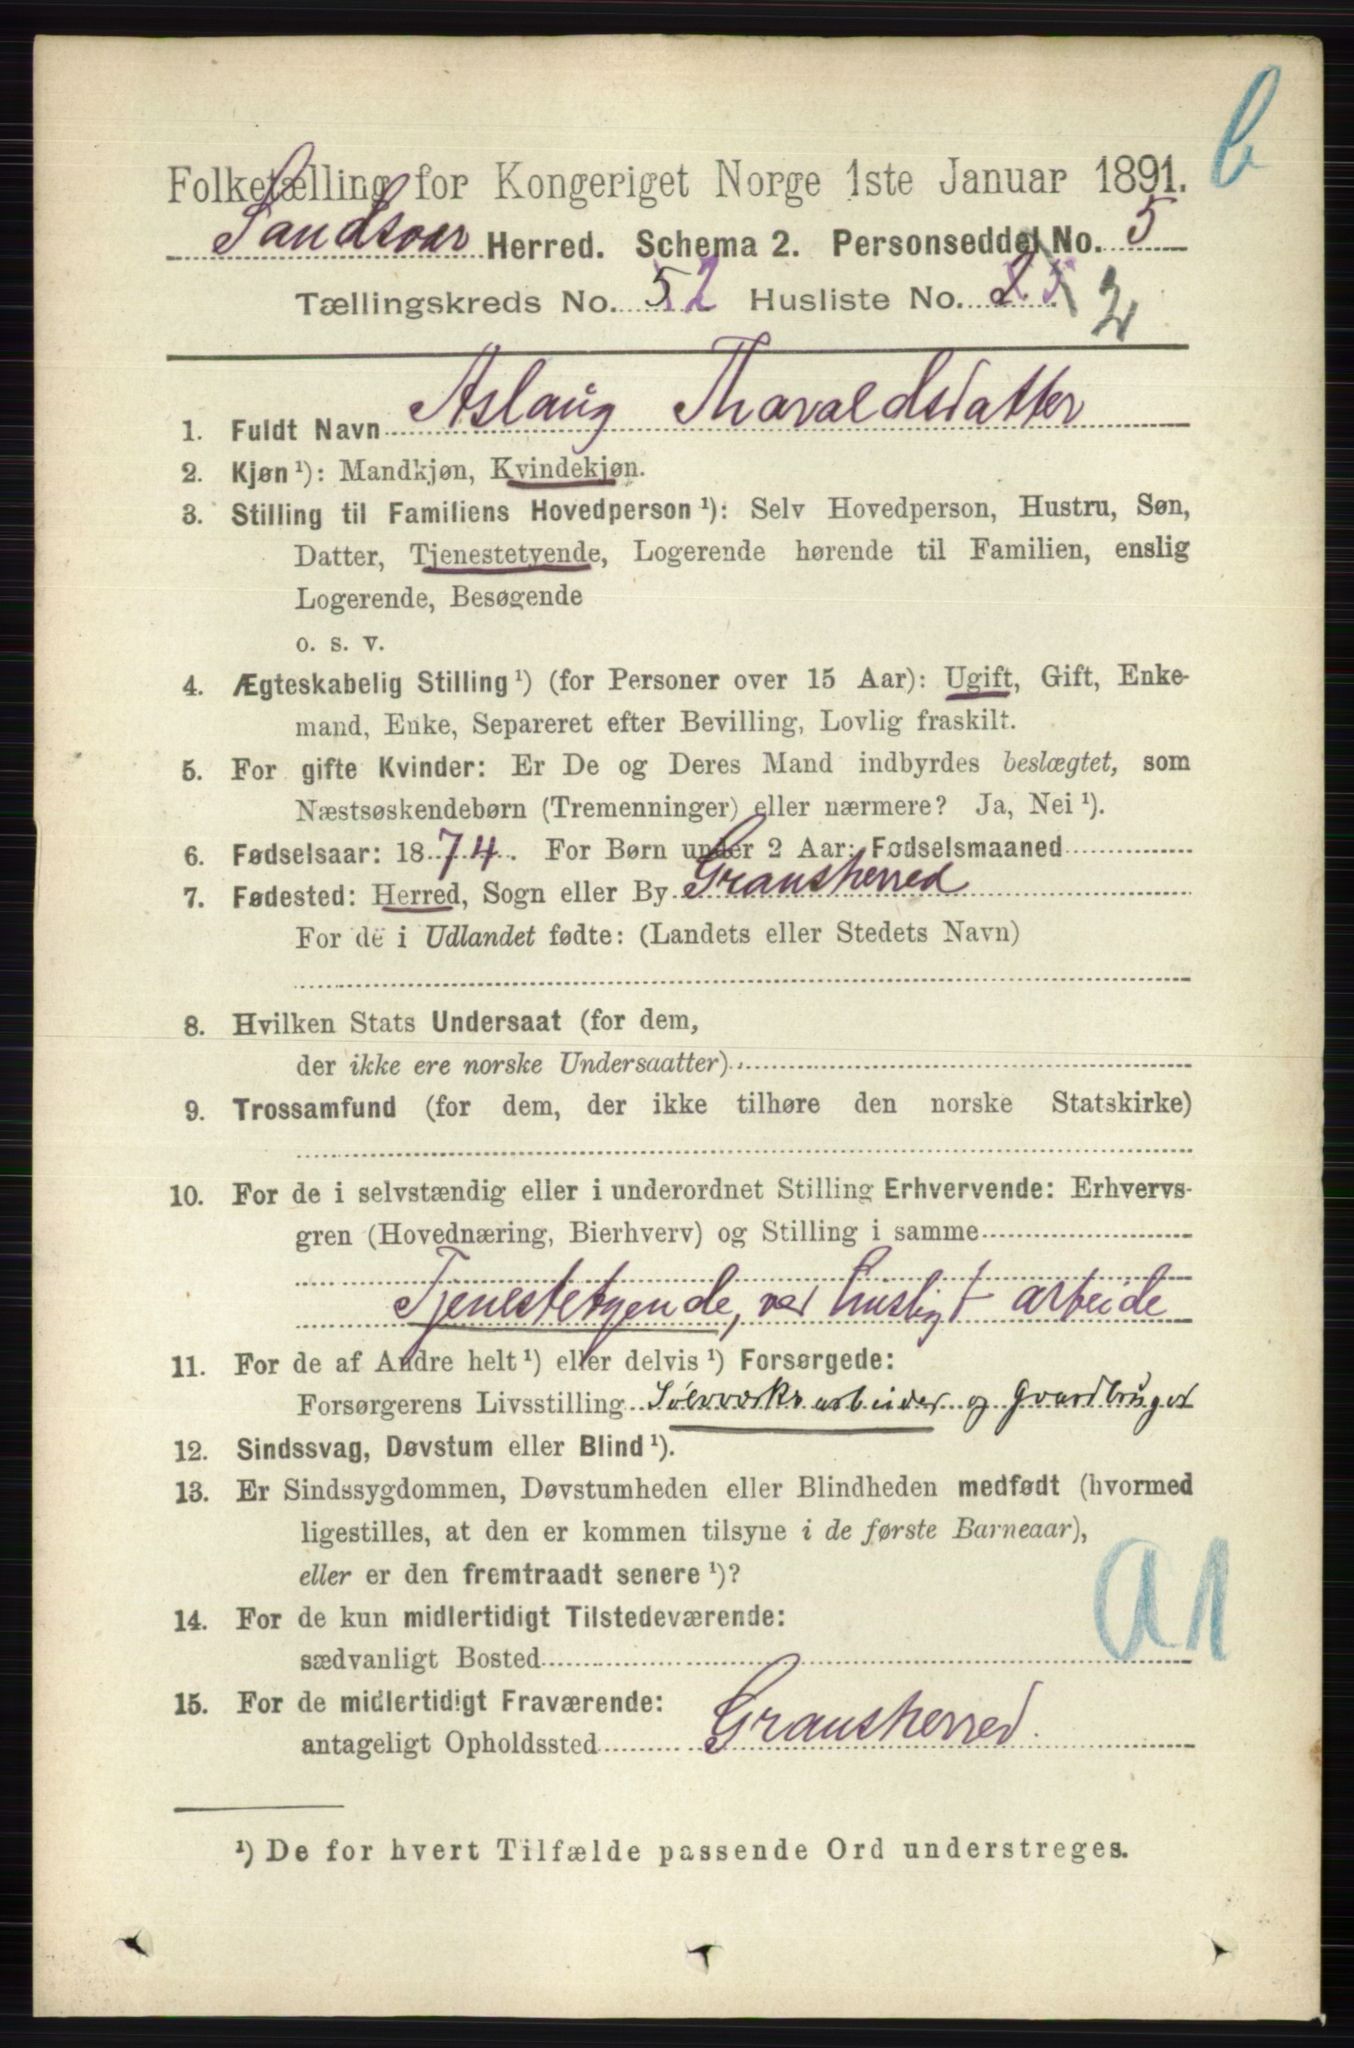 b
Folketælling for Kongeriget Norge 1ste Januar 1891.
Sandsvær Herred. Schema 2. Personseddel No. 5
Tællingskreds No. 52 Husliste No. 2
1. Fuldt Navn Aslaug Tharaldsdatter
2. Kjøn ¹): Mandkjøn, Kvindekjøn.
3. Stilling til Familiens Hovedperson ¹): Selv Hovedperson, Hustru, Søn,
Datter, Tjenestetyende, Logerende hørende til Familien, enslig
Logerende, Besøgende
o. s. v.
4. Ægteskabelig Stilling ¹) (for Personer over 15 Aar): Ugift, Gift, Enke-
mand, Enke, Separeret efter Bevilling, Lovlig fraskilt.
5. For gifte Kvinder: Er De og Deres Mand indbyrdes beslægtet, som
Næstsøskendebørn (Tremenninger) eller nærmere? Ja, Nei ¹).
6. Fødselsaar: 1874. For Børn under 2 Aar: Fødselsmaaned
7. Fødested: Herred, Sogn eller By Gransherred
For de i Udlandet fødte: (Landets eller Stedets Navn)
8. Hvilken Stats Undersaat (for dem,
der ikke ere norske Undersaatter)
9. Trossamfund (for dem, der ikke tilhøre den norske Statskirke)
10. For de i selvstændig eller i underordnet Stilling Erhvervende: Erhvervs-
gren (Hovednæring, Bierhverv) og Stilling i samme
Tjenestetyende, ved husligt arbeide
11. For de af Andre helt ¹) eller delvis ¹) Forsørgede:
Forsørgerens Livsstilling Sølvværksarbeider og Gaardbruger
12. Sindssvag, Døvstum eller Blind ¹).
13. Er Sindssygdommen, Døvstumheden eller Blindheden medfødt (hvormed
ligestilles, at den er kommen tilsyne i de første Barneaar),
eller er den fremtraadt senere ¹)?
a1
14. For de kun midlertidigt Tilstedeværende:
sædvanligt Bosted
15. For de midlertidigt Fraværende:
antageligt Opholdssted Gransherred.
¹) De for hvert Tilfælde passende Ord understreges.